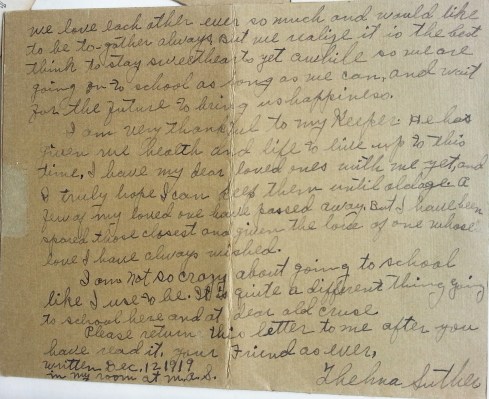 we love each other ever so much and would like
to be to-gather always, But we realize it is the best
think to stay sweethearts yet awhile so we are
going on to school as long as we can, and wait
for the future to bring us happiness.
I am very thankful to my Keeper He has
given me health and life to live up to this
time, I have my dear loved ones with me yet, and
I truly hope I can keep them until old age. A
few of my loved one have passed away. But I have been
spared those closest and given the love of one whose
love I have always wished.
I am not so crazy about going to school
like I use to be. It is quite a different thing going
to school here and at dear old cruse.
Please return this letter to me after you
have read it. your Friend as ever,
written Dec, 12 1919
in my room at S.
Thelma Suther